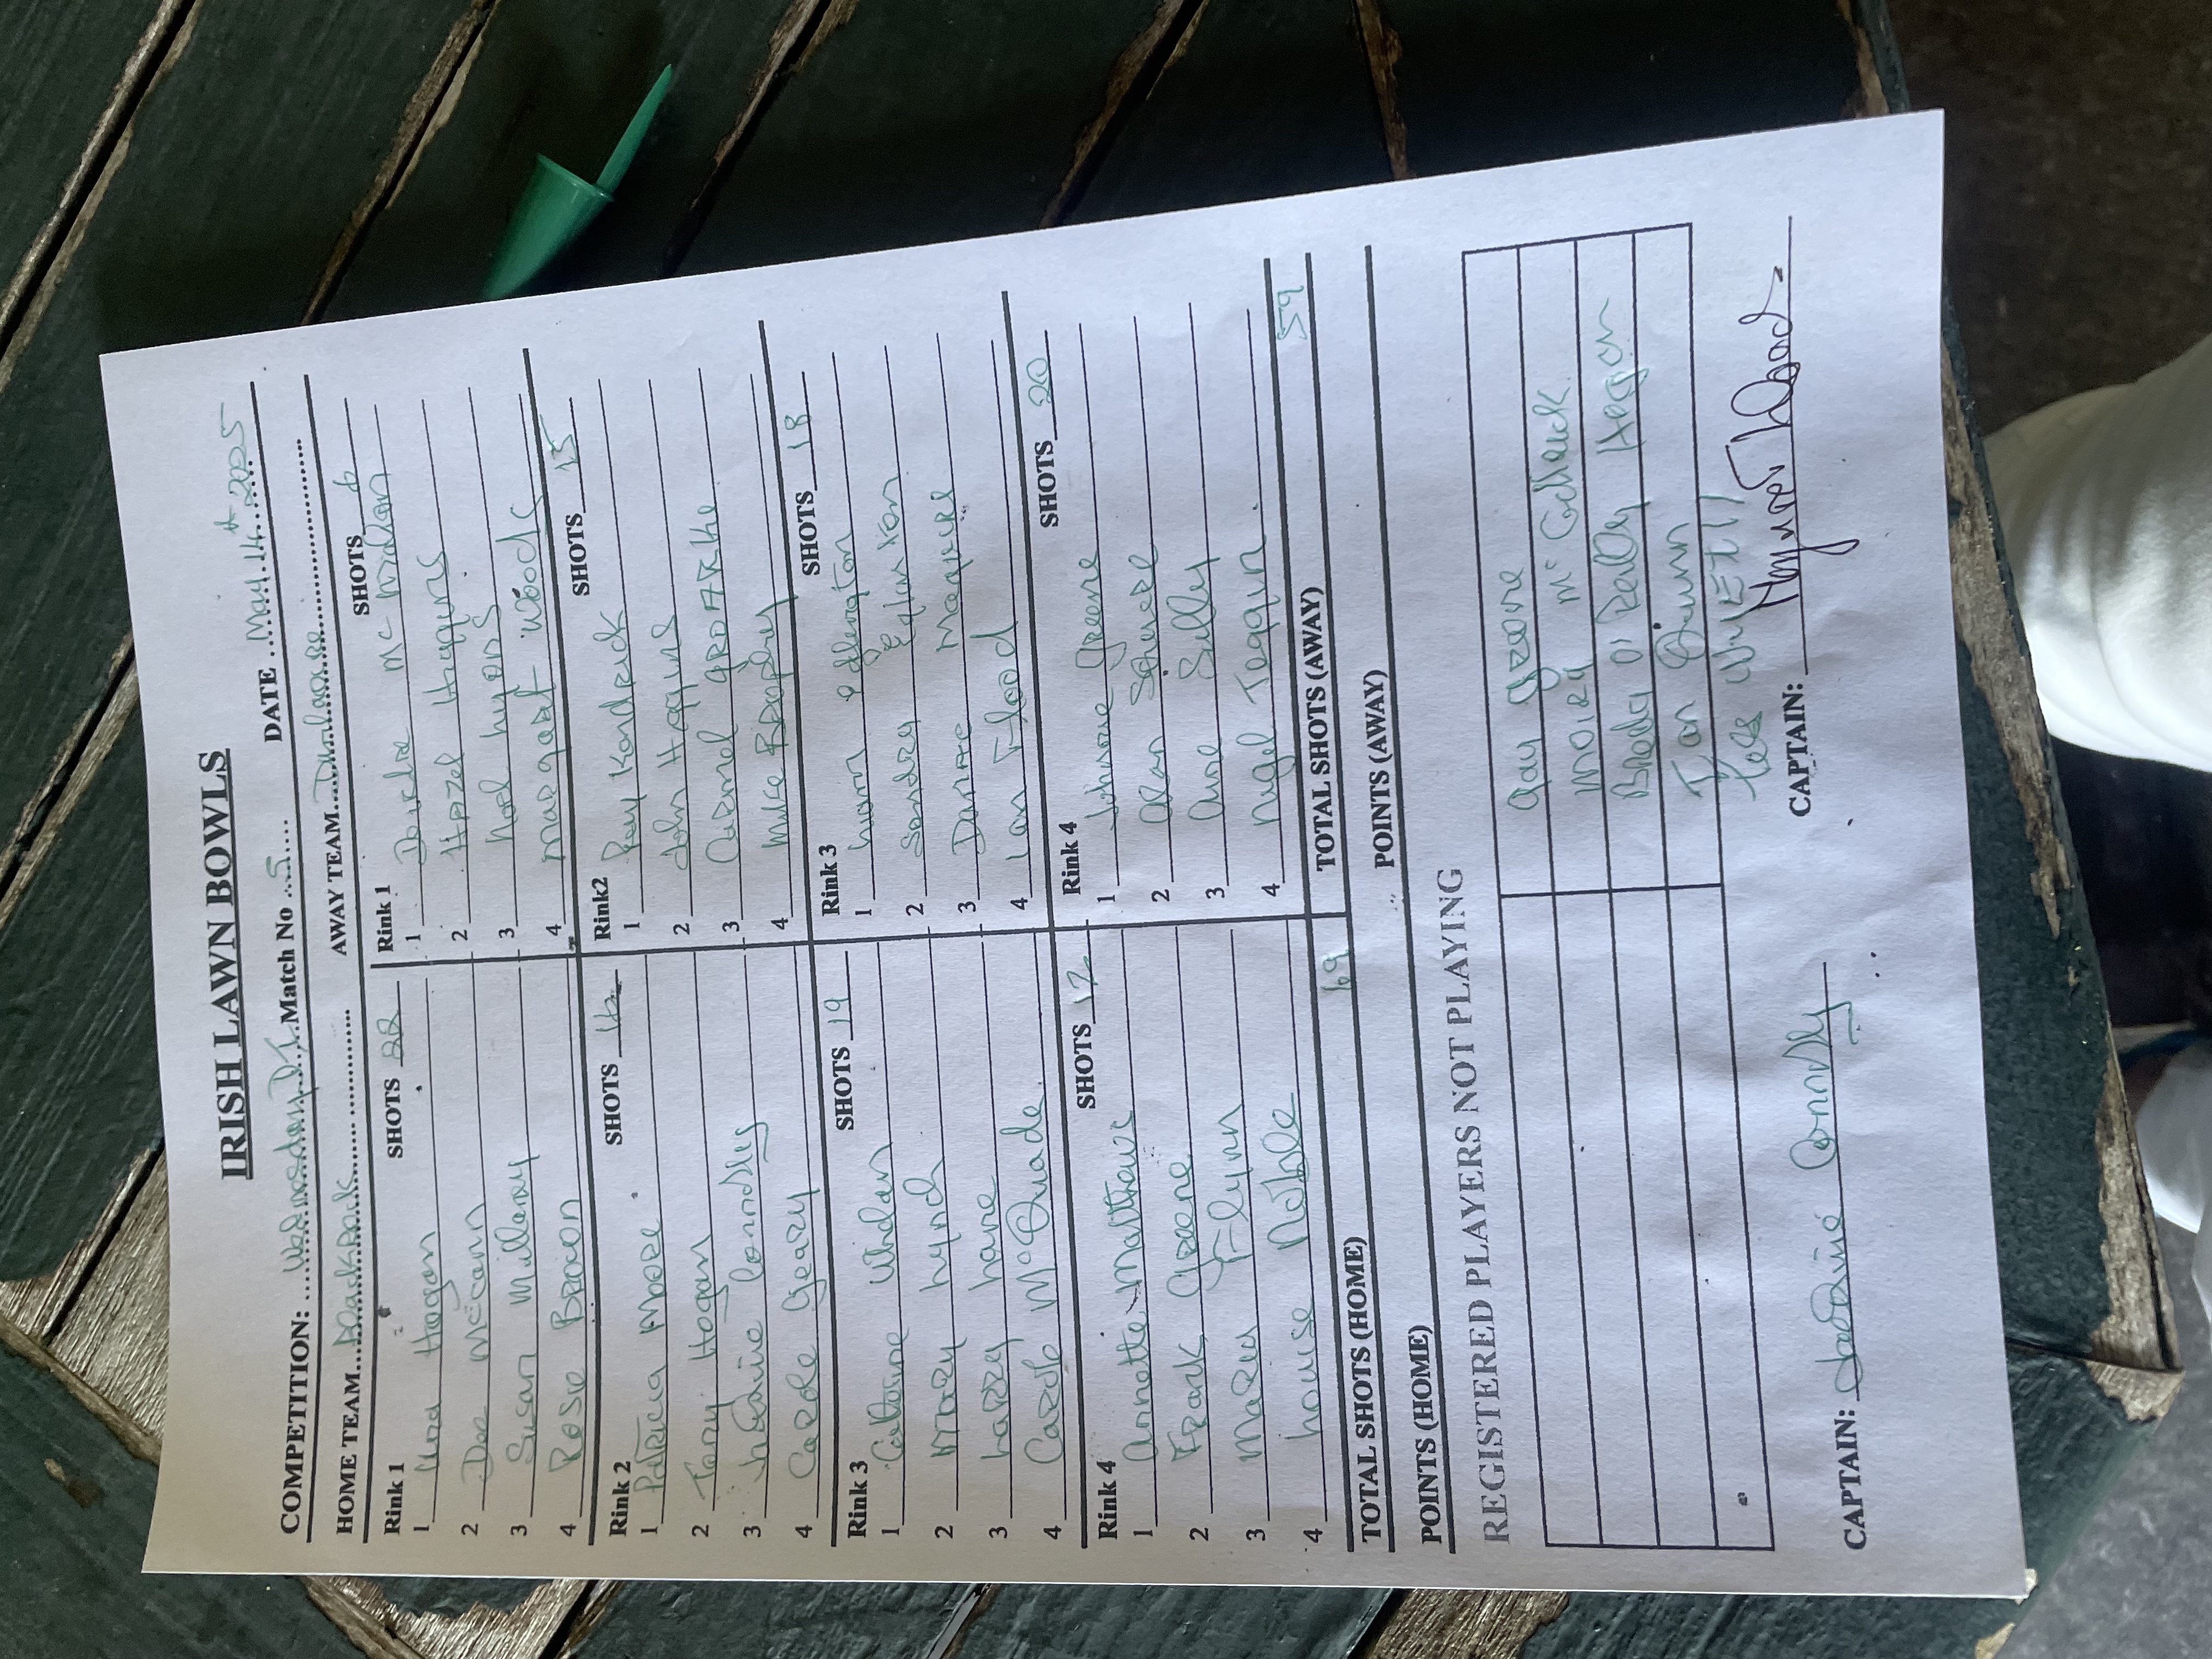 IRISH LAWN BOWLS
COMPETITION: Wednesday D1 Match No 5 DATE May 14th 2025
HOME TEAM Blackrock AWAY TEAM Dunlaoghaire
Rink 1 SHOTS 22 Rink 1 SHOTS 6
1 Una Hogan 1 Deirdre Mc Mahon
2 Dee McCann 2 Hazel Huggins
3 Susan Mullaney 3 Noel Lyons
4 Rose Brison 4 Margaret Woods
Rink 2 SHOTS 16 Rink2 SHOTS 15
1 Patricia Moore 1 Ray Kendrick
2 Tony Hogan 2 John Huggins
3 Loraine Connolly 3 Carmel
4 Carole Geary 4 Mike Brophy
Rink 3 SHOTS 19 Rink 3 SHOTS 18
1 Catherine Whelan 1
2 Mary Lynch 2 Sandra Eglinton
3 Larry Lane 3 Maguire
4 Carol McQuade 4 Len Flood
Rink 4 SHOTS 12 Rink 4 SHOTS 20
1 Annette Matthews 1 Greene
2 Frank Greene 2 Alan
3 Flynn 3 Anne Sully
4 Louise Noble 4 Nigel Teggin
TOTAL SHOTS (HOME) 69 TOTAL SHOTS (AWAY) 59
POINTS (HOME) POINTS (AWAY)
REGISTERED PLAYERS NOT PLAYING
Gay Greene
Moira Mc
Breda O'Reilly Hegan
Ian Quinn
CAPTAIN: Connolly CAPTAIN: